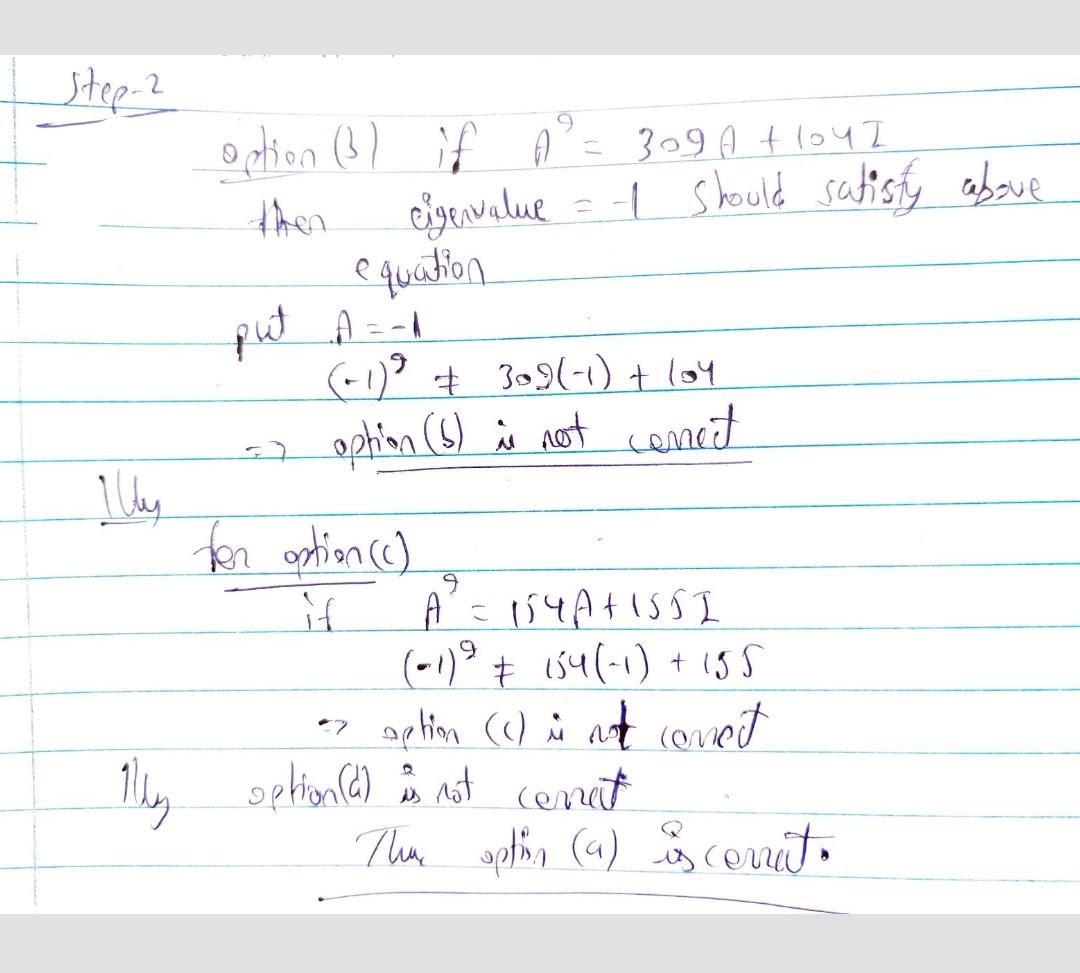 Step-2
option (b) if A⁹ = 309A + 104I
then eigenvalue = -1 should satisfy above
equation
put A = -1
(-1)⁹ ≠ 309(-1) + 104
=> option (b) is not correct
Illy
for option (c)
if A⁹ = 154A + 155I
(-1)⁹ ≠ 154(-1) + 155
=> option (c) is not correct
Illy option (d) is not correct
Thus option (a) is correct.